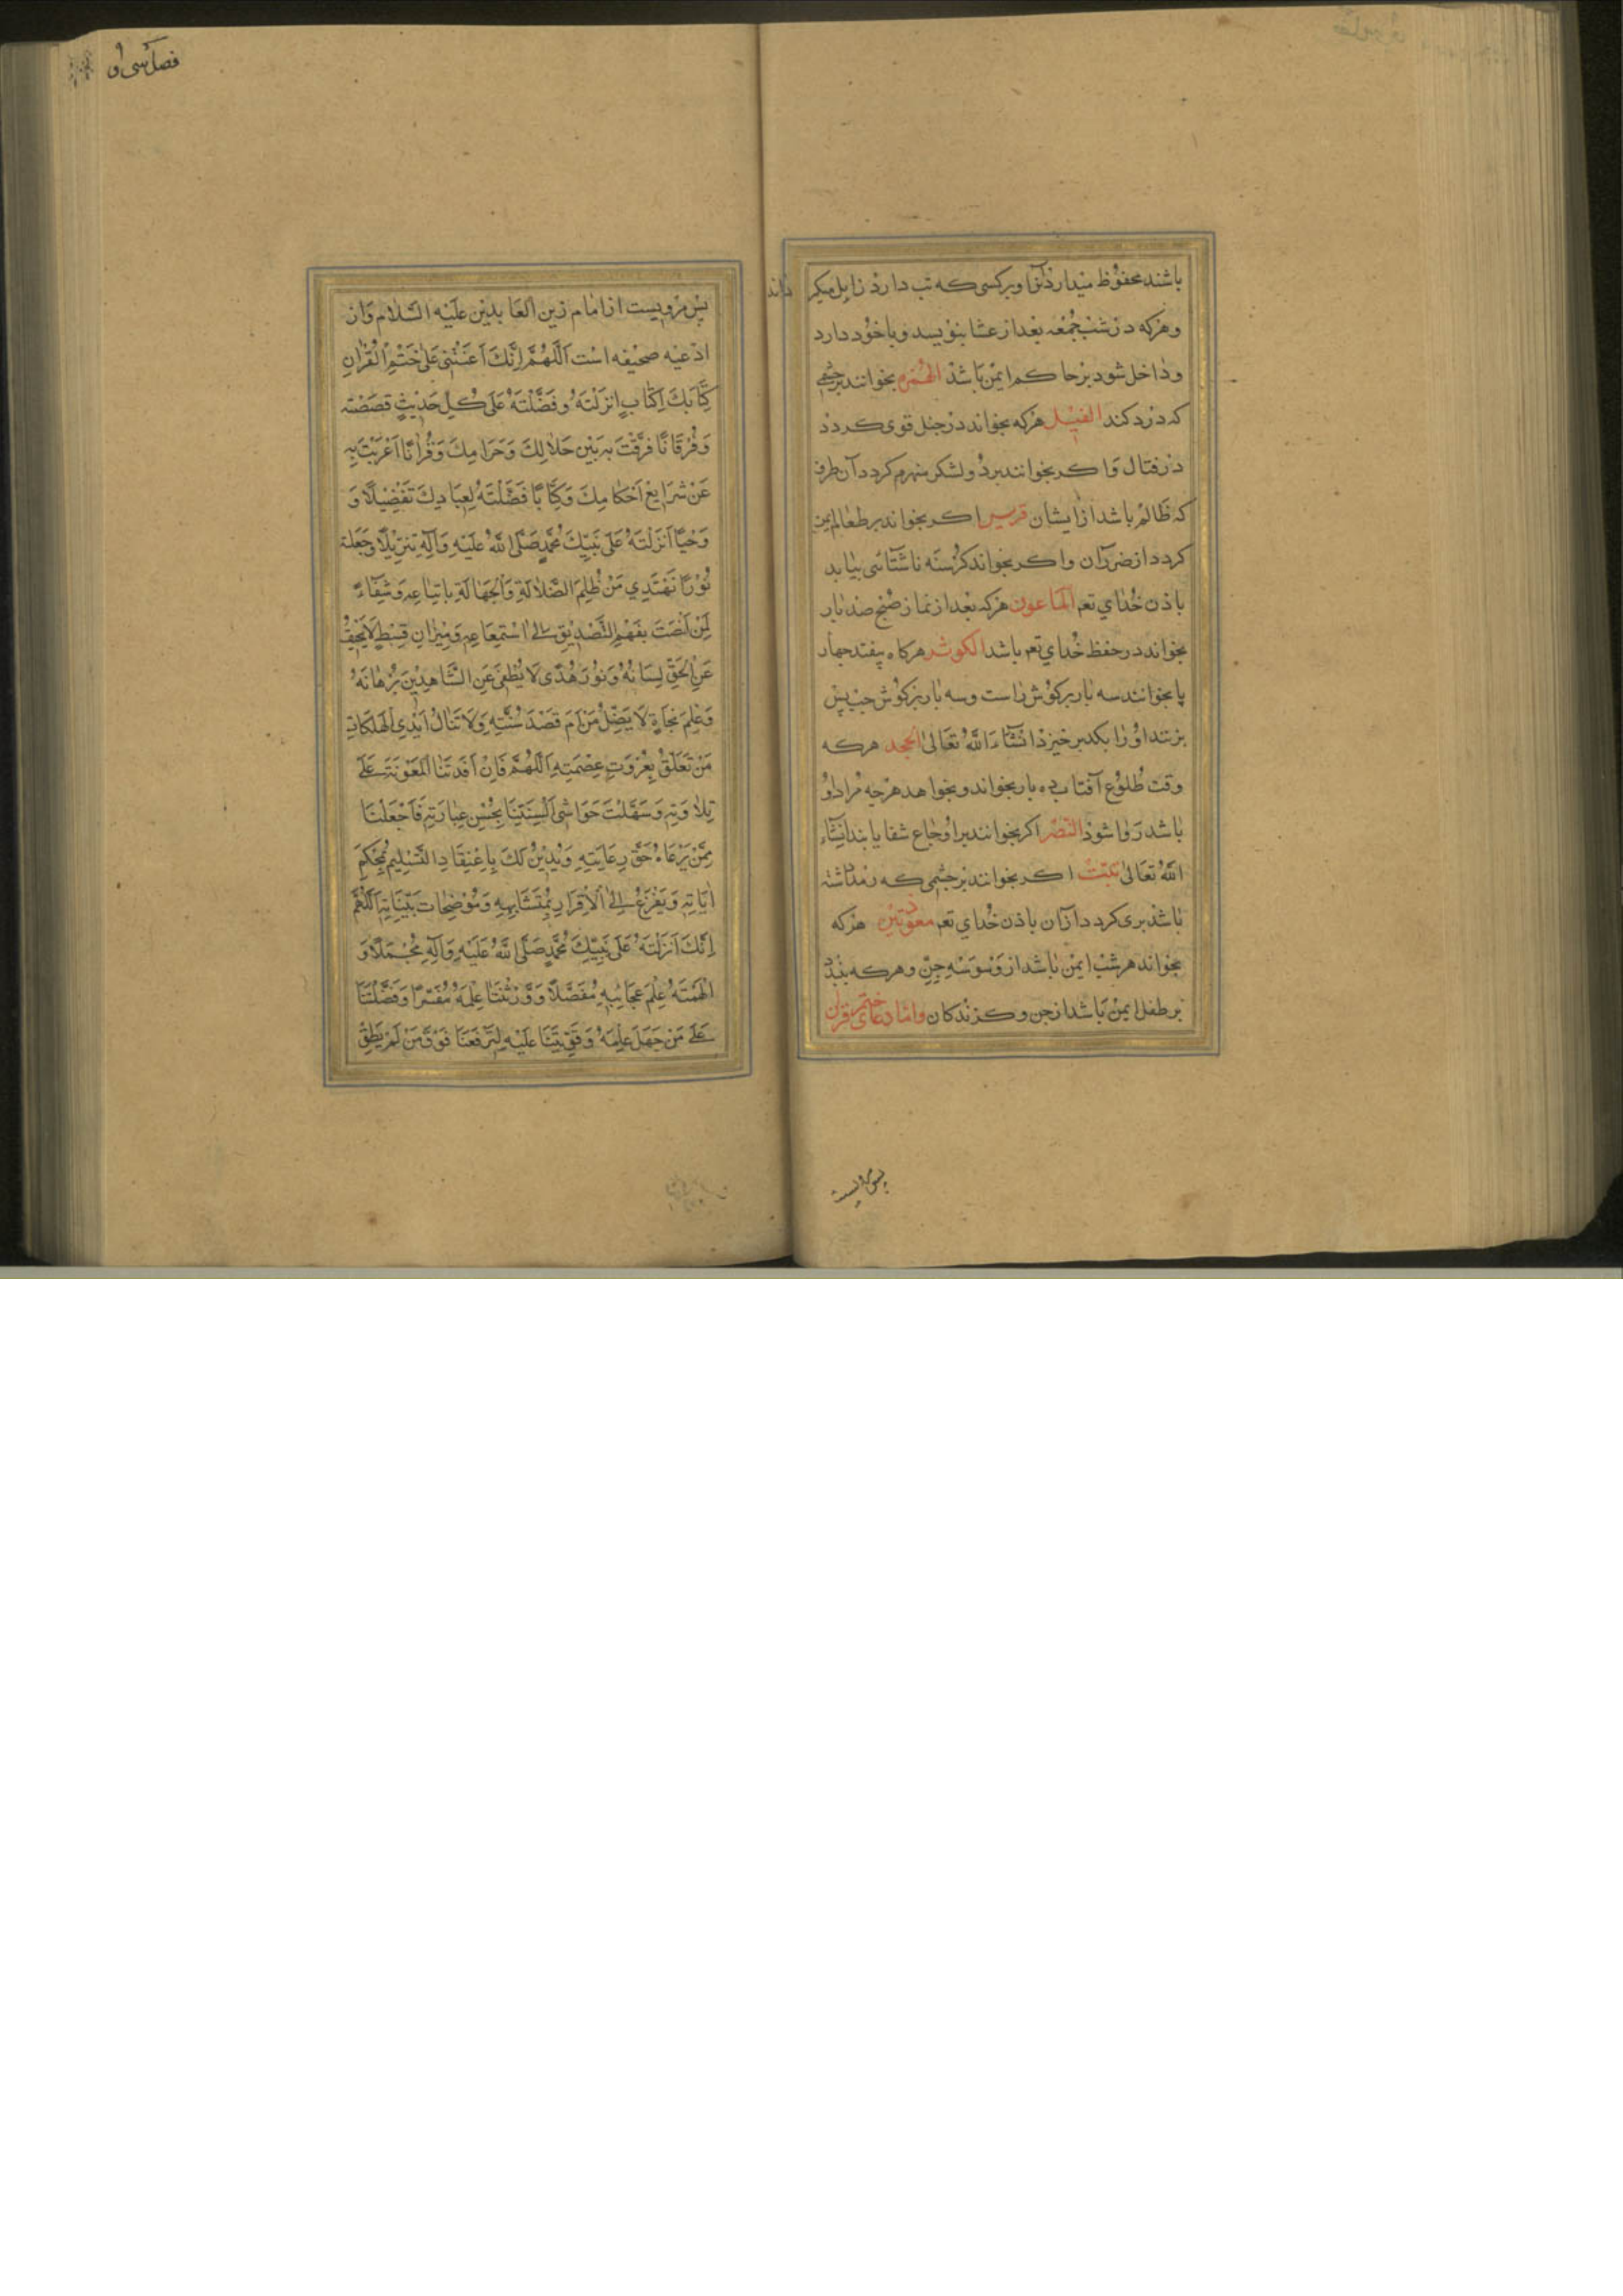 باشند محفوظ میدارد آنرا و برکسی که تب دارد زایل میکر
داند
و هرکه در شب جمعه بعد از عشا بنویسد و با خود دارد
و داخل شود بر حاکم ایمن باشد الهمزه بخوانند بر چشمی
که درد کند الفیل هرکه بخواند در جنك قوی کردد
در قتال و اکر بخوانند برد و لشکر منهزم کردد آن طرف
که ظالم باشد از ایشان قریش اکر بخواند بر طعام ایمن
کردد از ضرر آن و اکر بخواند کرسنه ناشتائی بیابد
باذن خدای تعم الماعون هرکه بعد از نماز صبح صد بار
بخواند در حفظ خدای تعم باشد الکوثر هرکاه بیفتد چهار
پا بخوانند سه بار بر کوش راست و سه بار بر کوش چپ پس
بزنند او را بکد برخیزد انشاء الله تعالی الجحد هرکه
وقت طلوع آفتاب ده بار بخواند و بخواهد هرچه مراد او
باشد روا شود النصر اکر بخوانند بر اوجاع شفا یابد انشاء
الله تعالی تبت اکر بخوانند بر چشمی که رمد داشته
باشد بری کردد از آن باذن خدای تعم معوذتین هرکه
بخواند هر شب ایمن باشد از وسوسه جن و هرکه بندد
بر طفل ایمن باشد از جن و کزندکان و امّا دعای ختم قرآن
پس مرویست
فصل سی او
پس مرویست از امام زین العابدین علیه السلام و از
ادعیه صحیفه است اَللّهُمَّ اِنَّكَ اَعَنْتَنی عَلی خَتْمِ الْقُرْانِ
كِتَابِكَ اَلْكِتَابِ اَنْزَلْتَهُ وَفَضَّلْتَهُ عَلى كُلِّ حَدِيثٍ قَصَصْتَه
وَفُرْقَانًا فَرَقْتَ بِهِ بَيْنَ حَلَالِكَ وَحَرَامِكَ وَقُرْانًا اَعْرَبْتَ بِهِ
عَنْ شَرَايِعِ اَحْكَامِكَ وَكِتَابًا فَصَّلْتَهُ لِعِبَادِكَ تَفْضِيْلًا وَ
وَحْيًا اَنْزَلْتَهُ عَلى نَبِيِّكَ مُحَمَّدٍ صَلَّى اللهُ عَلَيْهِ وَآلِهِ تَنْزِيْلًا وَجَعَلْتَه
نُوْرًا نَهْتَدِي مَنْ ظُلَمِ الضَّلَالَةِ وَالْجَهَالَةِ بِاتِّبَاعِهِ وَشِفَاءً
لِمَنْ اَنْصَتَ بِفَهْمِ التَّصْدِيْقِ اِلَى اسْتِمَاعِهِ وَمِيْزَانَ قِسْطٍ لَا يَحِيْفُ
عَنِ الْحَقِّ لِسَانُهُ وَنُوْرَ هُدًى لَا يُطْفَى عَنِ الشَّاهِدِيْنَ بُرْهَانَهُ
وَعَلَمَ نَجَاةٍ لَا يَضِلُّ مَنْ اَمَّ قَصْدَ سُنَّتِهِ وَلَا تَنَالُ اَيْدِي الْهَلَكَاتِ
مَنْ تَعَلَّقَ بِعُرْوَتِ عِصْمَتِهِ اَللّهُمَّ فَاِنْ اَفَدْتَنَا الْمَعُوْنَةَ عَلى
تِلَاوَتِهِ وَسَهَّلْتَ حَوَاشِيَ اَلْسِنَتِنَا بِحُسْنِ عِبَارَتِهِ فَاجْعَلْنَا
مِمَّنْ يَرْعَاهُ حَقَّ رِعَايَتِهِ وَيُدِيْنُ لَكَ بِاِعْتِقَادِ التَّسْلِيْمِ لِمُحْكَمِ
ايَاتِهِ وَيَفْزَعُ اِلَى الْاِقْرَارِ بِمُتَشَابِهِهِ وَمُوْضِحَاتِ بَيِّنَاتِهِ اَللّهُمَّ
اِنَّكَ اَنْزَلْتَهُ عَلى نَبِيِّكَ مُحَمَّدٍ صَلَّى اللهُ عَلَيْهِ وَآلِهِ مُجْمَلًا وَ
اَلْهَمْتَهُ عِلْمَ عَجَائِبِهِ مُفَصَّلًا وَوَرَّثْتَنَا عِلْمَهُ مُفَسَّرًا وَفَضَّلْتَنَا
عَلى مَنْ جَهِلَ عِلْمَهُ وَقَوَّيْتَنَا عَلَيْهِ لِتَرْفَعَنَا فَوْقَ مَنْ لَمْ يَطِقْ